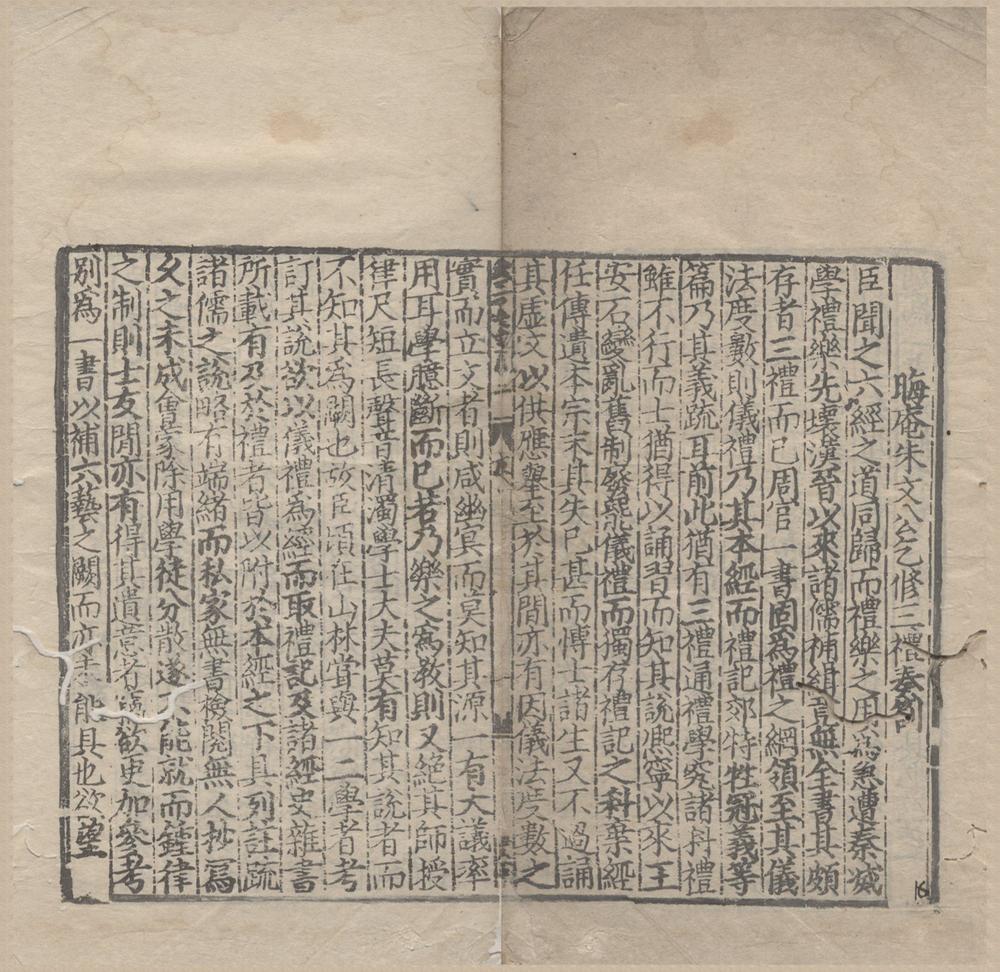 晦庵朱文公乞修三禮奏劄
臣聞之六經之道同歸而禮樂之用為急遭秦滅
學禮樂先壞漢晉以來諸儒補緝竟無全書其頗
存者三禮而已周官一書固為禮之綱領至其儀
法度數則儀禮乃其本經而禮記郊特牲冠義等
篇乃其義疏耳前此猶有三禮通禮學究諸科禮
雖不行而士猶得以誦習而知其說熙寧以來王
安石變亂舊制廢罷儀禮而獨存禮記之科棄經
任傳遺本宗末其失已甚而博士諸生又不過誦
其虛文以供應舉至於其間亦有因儀法度數之
實而立文者則咸幽冥而莫知其源一有大議率
用耳學臆斷而已若乃樂之為教則又絕其師授
律尺短長聲音清濁學士大夫莫有知其說者而
不知其為闕也故臣頃在山林嘗與一二學者考
訂其說欲以儀禮為經而取禮記及諸經史雜書
所載有及於禮者皆以附於本經之下具列註疏
諸儒之說略有端緒而私家無書檢閱無人抄寫
久之未成會蒙除用學徒分散遂不能就而鍾律
之制則士友間亦有得其遺意者竊欲更加參考
別為一書以補六藝之闕而亦未能具也欲望
16